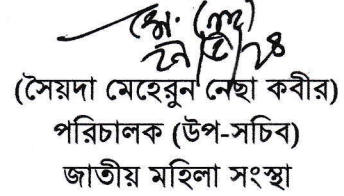 (সৈয়দা মেহেরুন নেছা কবীর)
পরিচালক (উপ-সচিব)
জাতীয় মহিলা সংস্থা